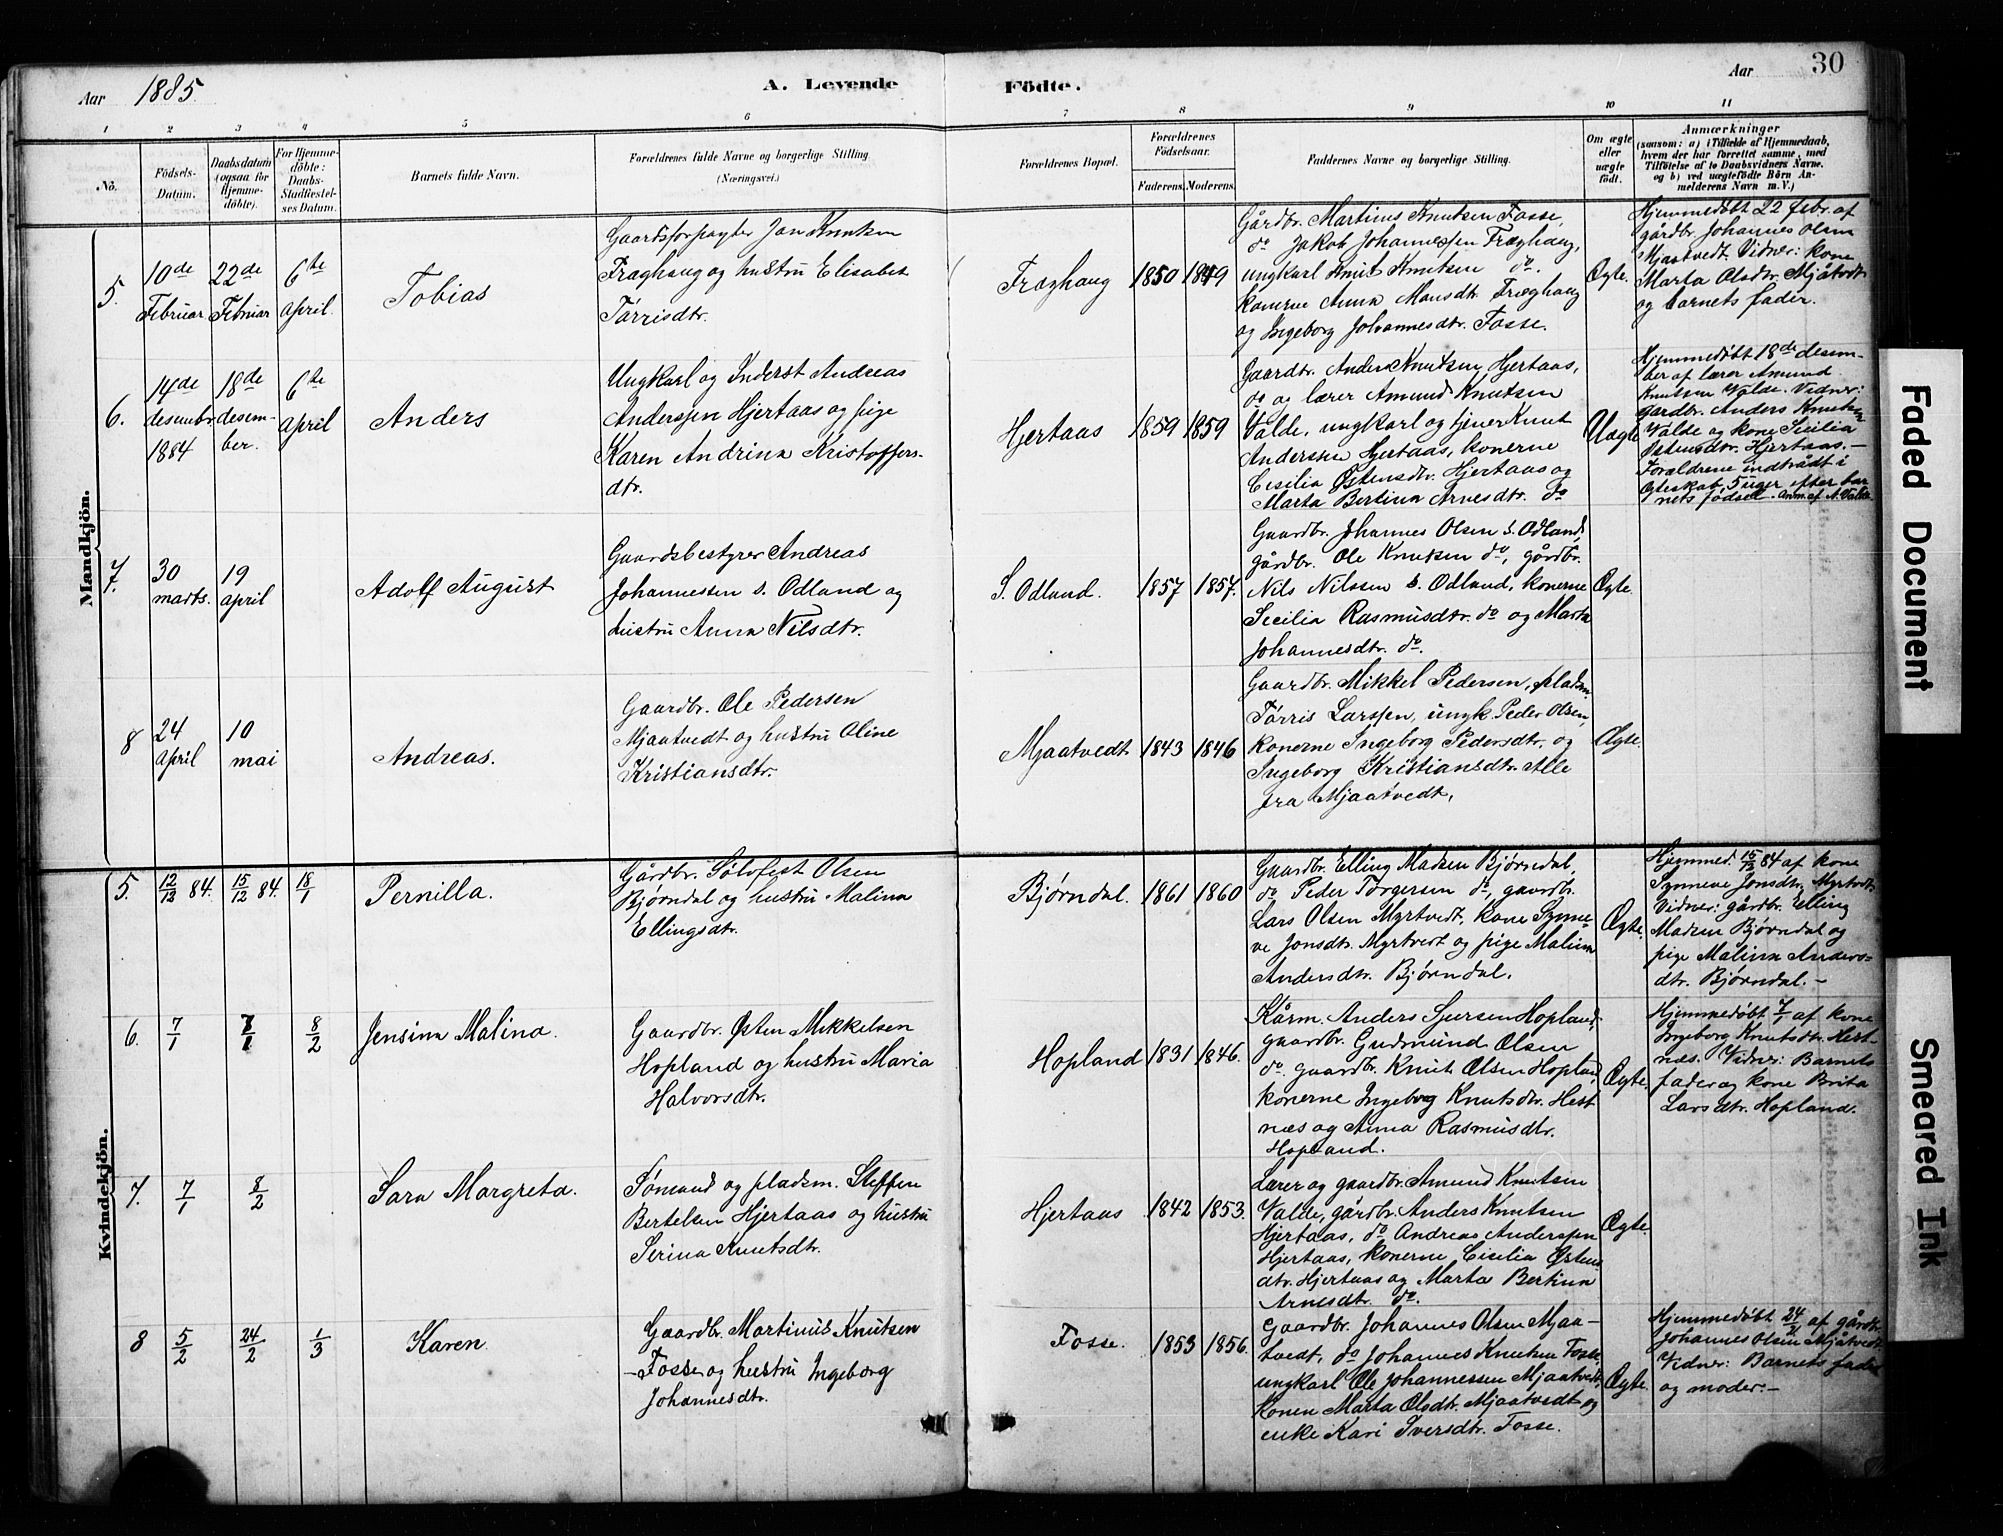 Aar 1885.
A. Levende Födte.
Aar
30
1
2
3
4
5
6
7
8
9
10
11
No.
Födsels-
Datum.
Daabsdatum
(ogsaa for
Hjemme-
döbte).
For Hjemme-
döbte:
Daabs-
Stadfæstel-
ses Datum.
Barnets fulde Navn.
Forældrenes fulde Navne og borgerlige Stilling.
(Næringsvei.)
Forældrenes Bopæl.
Forældrenes
Födselsaar.
Faderens.
Moderens.
Faddernes Navne og borgerlige Stilling.
Om ægte
eller
uægte
födt.
Anmærkninger
(saasom: a) i Tilfælde af Hjemmedaab,
hvem der har forrettet samme, med
Tilföielse af to Daabsvidners Navne,
og b) ved uægtefödte Börn An-
melderens Navn m. V.)
Mandkjön.
5.
10de
Februar
22de
Februar
6te
april.
Tobias
Gaardsforpagter Jan Knutsen
Fræghaug og hustru Elisabet
Tørrisdtr.
Fræghaug
1850
1849
Gårdbr. Martinus Knutsen Fosse,
do Jakob Johannessen Fræghaug,
ungkarl Knut Knutsen do.
konerne Anna Monsdtr. Fræghaug
og Ingeborg Johannesdtr. Fosse.
Ægte.
Hjemmedøbt 22 febr. af
gårdbr. Johannes Olsen
Mjaatvedt. Vidner: kone
Marta Olsdtr. Mjåtvedt
og barnets fader.
6.
14de
desembr
1884
18de
desem-
ber.
6te
april
Anders
Ungkarl og Inderst Andreas
Anderssen Hjertaas og pige
Karen Andrina Kristoffers-
dtr.
Hjertaas
1859
1859
Gaardbr. Anders Knutsen Hjertaas,
do og lærer Amund Knutsen
Valde, ungkarl og tjener Knut
Anderssen Hjertaas, konerne
Cesilia Østensdtr. Hjertaas og
Marta Bertina Arnesdtr. do
Uægte
Hjemmedøbt 18de desem-
ber af lærer Amund
Knutsen Valde. Vidner:
gardbr. Anders Knutsen
Valde og kone Secilia
Østensdtr. Hjertaas. —
Forældrene indtrådt i
Ægteskab 5 uger efter bar
nets fødsel. Anm. af A. Valde.
7.
30
marts.
19
april
Adolf August
Gaardsbestyrer Andreas
Johannessen s. Odland og
hustru Anna Nilsdtr.
S. Odland.
1857
1857.
Gaardbr. Johannes Olsen s. Odland,
gårdbr. Ole Knutsen do, gårdbr.
Nils Nilssen s. Odland, konerne
Secilia Rasmusdtr. do og Marta
Johannesdtr. do.
Ægte.
8
24
april
10
mai
Andreas.
Gaardbr. Ole Pedersen
Mjaatvedt og hustru Oline
Kristiansdtr.
Mjaatvedt.
1843
1846
Gaardbr. Mikkel Pedersen, pladsm.
Tørris Larssen, ungk. Peder Olsen,
konerne Ingeborg Pedersdtr. og
Ingeborg Kristiansdtr. Alle
fra Mjaatvedt.
Ægte.
Kvindekjön.
5.
12/12 84.
15/12 84.
18/1
Pernilla.
Gårdbr. Sølvfest Olsen
Bjørndal og hustru Malina
Ellingsdtr.
Bjørndal.
1861
1860
Gaardbr. Elling Madsen Bjørndal,
do Peder Torgersen do, gaardbr.
Lars Olsen Myrtvedt, kone Synne-
ve Jonsdtr. Myrtvedt og pige Malina
Andersdtr. Bjørndal.
Ægte.
Hjemmed. 15/12 84 af kone
Synneve Jonsdtr. Myrtvedt
Vidner: gårdbr. Elling
Madsen Bjørndal og
pige Malina Anders-
dtr. Bjørndal. —
6.
7/1
7/1
8/2
Jensina Malina.
Gaardbr. Østen Mikkelsen
Hopland og hustru Maria
Halvorsdtr.
Hopland
1831
1846.
Kårm. Anders Sjursen Hopland,
gaardbr. Gudmund Olsen
do. gaardbr. Knut Olsen Hopland,
konerne Ingeborg Knutsdtr. Hest
næs og Anna Rasmusdtr.
Hopland.
Ægte.
Hjemmedøbt 7/1 af kone
Ingeborg Knutsdtr. Hest-
næs. Vidner: Barnets
fader og kone Brita
Larsdtr. Hopland.
7.
7/1
8/2
Sara Margreta.
Sømand og pladsm. Steffen
Bertelsen Hjertaas og hustru
Serina Knutsdtr.
Hjertaas
1842
1853.
Lærer og gaardbr. Amund Knutsen
Valde, gårdbr. Anders Knutsen
Hjertaas, do Andreas Anderssen
Hjertaas, konerne Cisilia Østens
dtr. Hjertaas og Marta Bertina
Arnesdtr. do.
Ægte.
8
5/2
24/2
1/3
Karen.
Gaardbr. Martinus Knutsen
Fosse og hustru Ingeborg
Johannesdtr.
Fosse.
1853
1856.
Gaardbr. Johannes Olsen Mjaa-
tvedt, do Johannes Knutsen Fosse,
ungkarl Ole Johannessen Mjaatvedt,
Konen Marta Olsdtr. Mjaatvedt og
enke Kari Iversdtr. Fosse.
Ægte.
Hjemmedøbt 24/2 af gårdb.
Johannes Olsen Mjåtvedt.
Vidner: Barnets fader
og moder. —
Faded Document
Smeared Ink